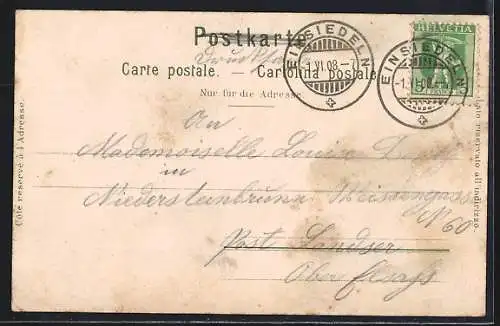 Postkarte
Drucksache
Carte postale. — Cartolina postale
Nur für die Adresse
EINSIEDELN
-1.VI.08.-7
EINSIEDELN
-1.VI.08.-
HELVETIA
5
Côté réservé à l'Adresse.
Lato riservato all'indirizzo.
An
Mademoiselle Louise
in
Niedersteinbrunn
N 60
Post Landser
Ober Elsass